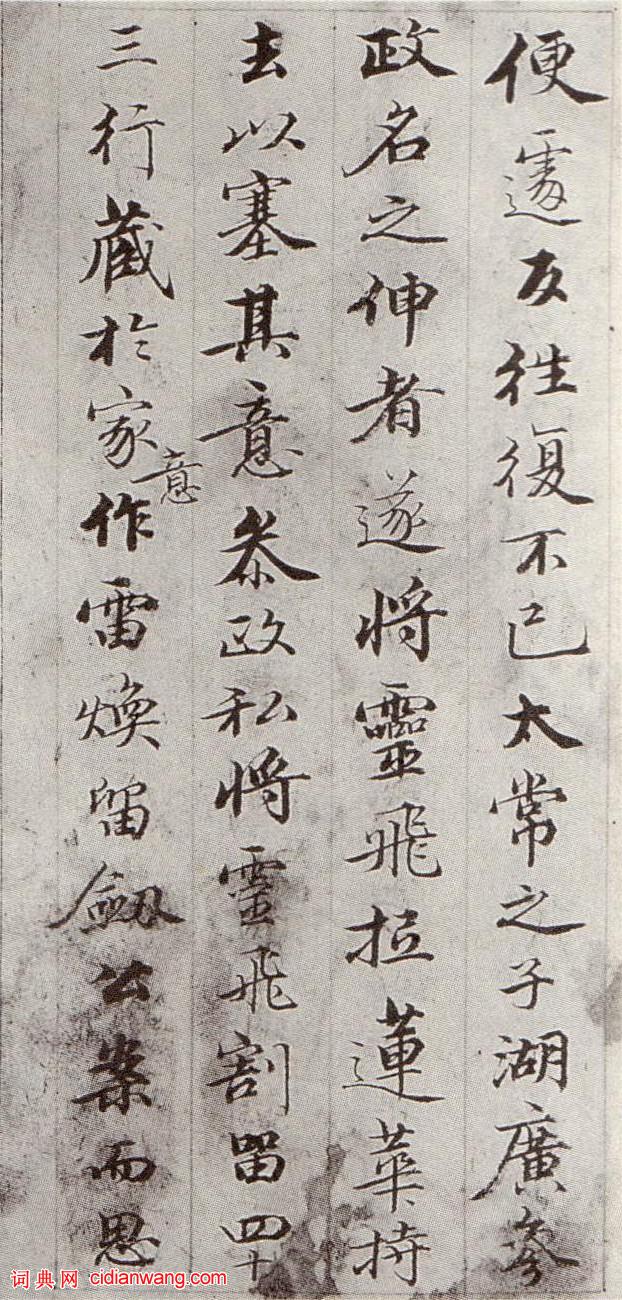 便遽反往復不已太常之子湖廣參
政名之伸者遂将靈飛抵蓮華持
去以塞其意叅政私将靈飛割留四十
三行藏於家意作雷煥留劔公案而思
词典网 cidianwang.com